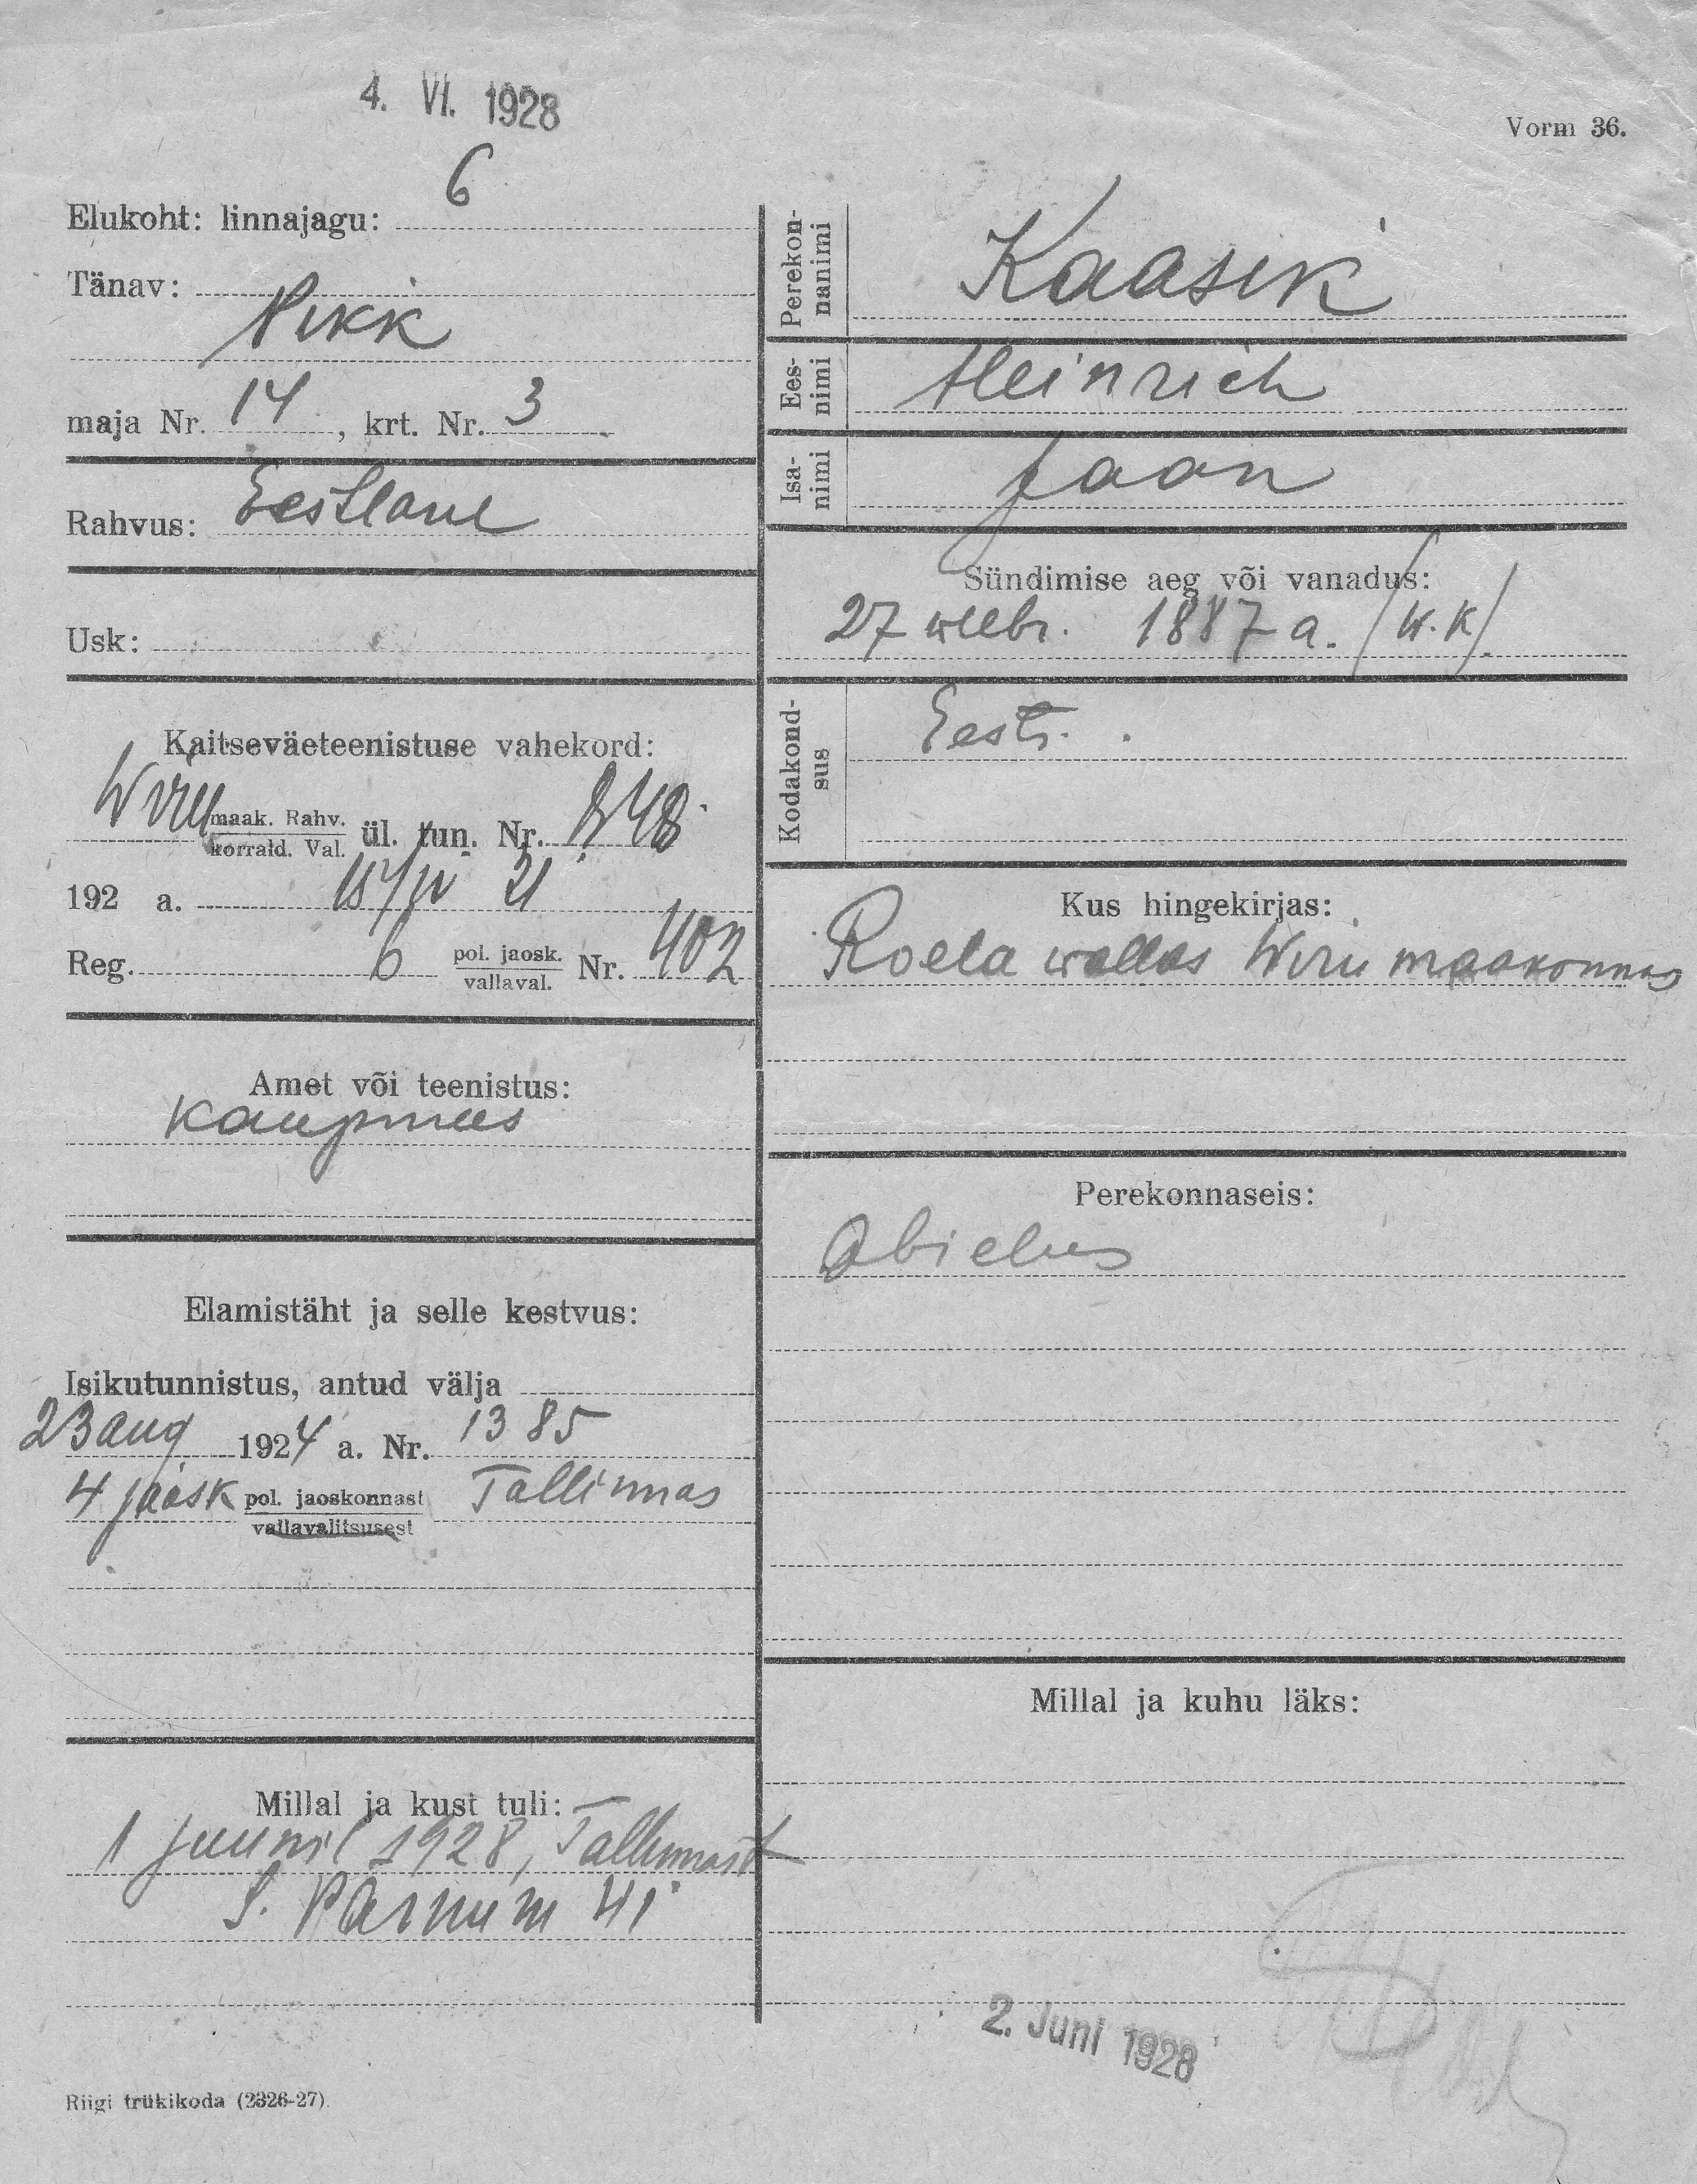 4. VI. 1928
Vorm 36.
Elukoht: linnajagu: 6
Tänav:
Pikk
maja Nr. 14, krt. Nr. 3
Rahvus: Eestlane
Usk:
Kaitseväeteenistuse vahekord:
Wiru maak. Rahv. ül. tun. Nr. 848
korrald. Val.
192 a. 15/IV 21
Reg. 6 pol. jaosk. Nr. 402
vallaval.
Amet või teenistus:
Kaupmees
Elamistäht ja selle kestvus:
Isikutunnistus, antud välja
23 aug 1924 a. Nr. 1385
4 jaosk pol. jaoskonnast Tallinnas
vallavalitsusest
Millal ja kust tuli:
1 juunil 1928, Tallinnast
S. Pärnu m 41
Riigi trükikoda (2326-27)
Perekon-
nanimi
Kaasik
Ees-
nimi
Heinrich
Isa-
nimi
Jaan
Sündimise aeg või vanadus:
27 weebr. 1887 a. /w. k/.
Kodakond-
sus
Eesti.
Kus hingekirjas:
Roela wallas Wiru maakonnas
Perekonnaseis:
Abielus
Millal ja kuhu läks:
2. Juni 1928